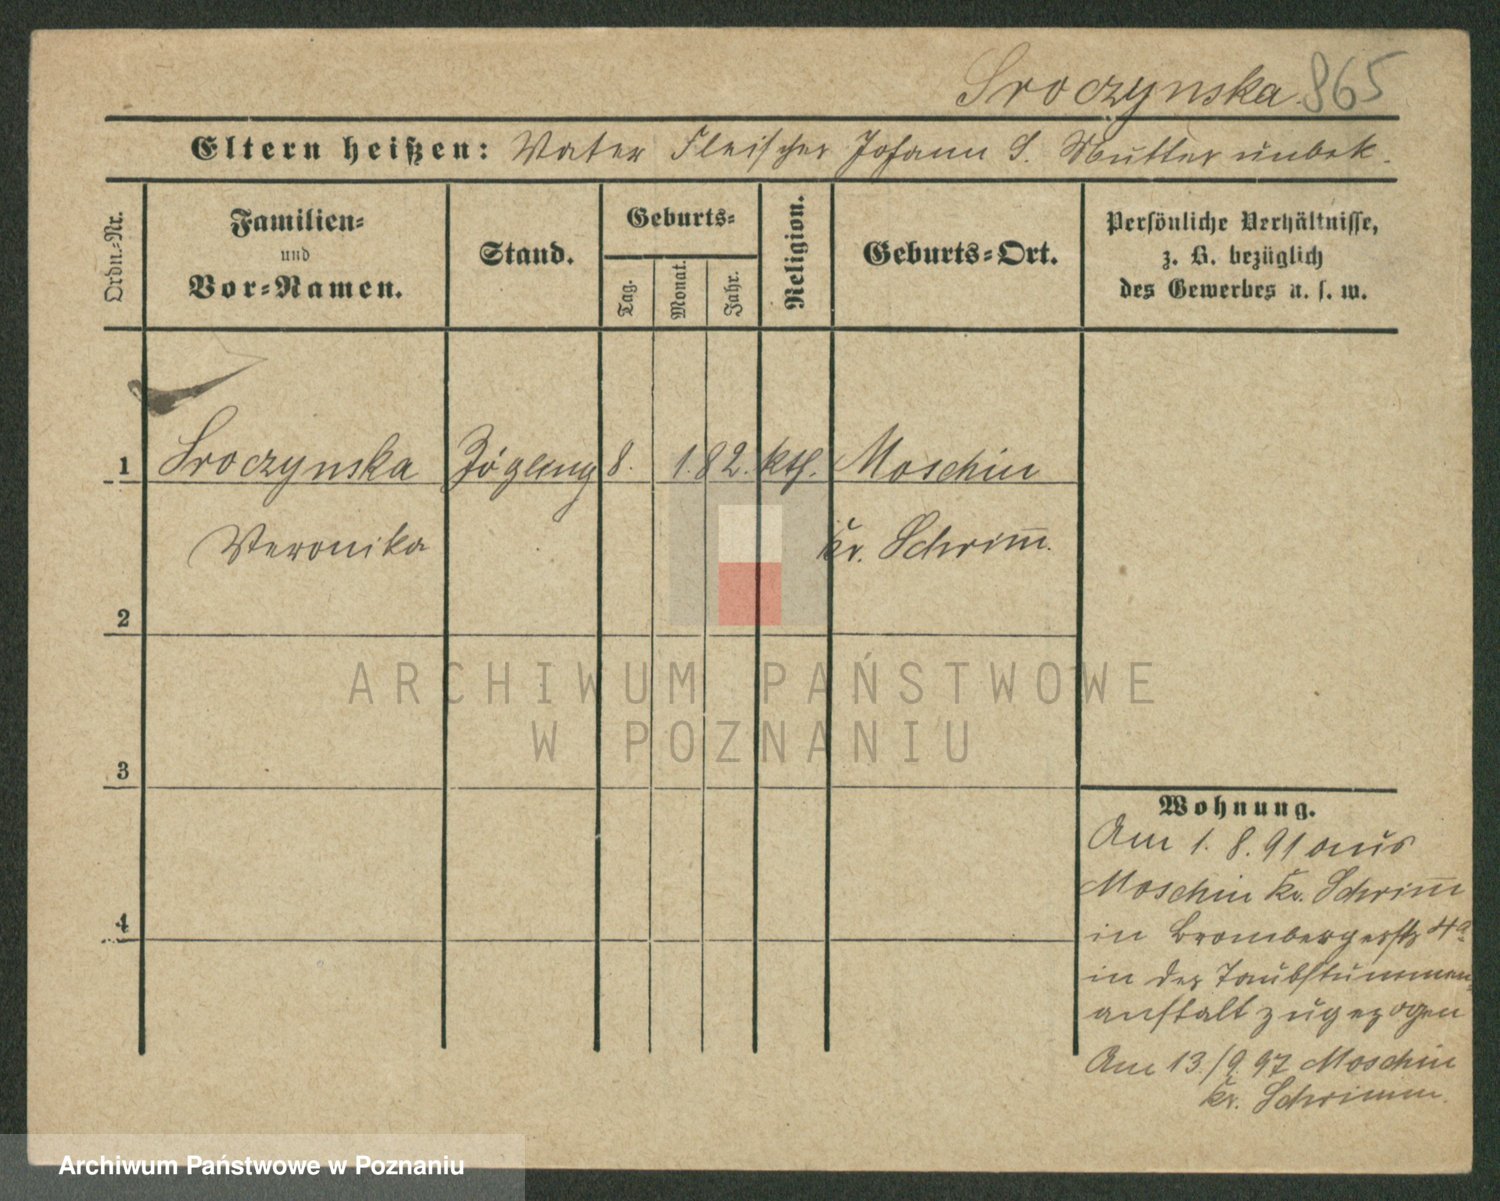 Sroczynska 865
Eltern heißen: Vater Fleischer Johann S. Mutter unbek.
Ordn.-Nr.
Familien-
und
Vor-Namen.
Stand.
Geburts-
Tag.
Monat.
Jahr.
Religion.
Geburts-Ort.
Persönliche Verhältnisse,
z. B. bezüglich
des Gewerbes u. s. w.
1 Sroczynska Zögling 8. 1. 82. kth. Moschin
Veronika Kr. Schrim̅.
2
ARCHIWUM PAŃSTWOWE
W POZNANIU
3
Wohnung.
Am 1. 8. 91 aus
Moschin Kr. Schrim̅
4
in Brombergerstr 4a
in der Taubstummen-
anstalt zugezogen
Am 13./9. 97 Moschin
Kr. Schrimm.
Archiwum Państwowe w Poznaniu